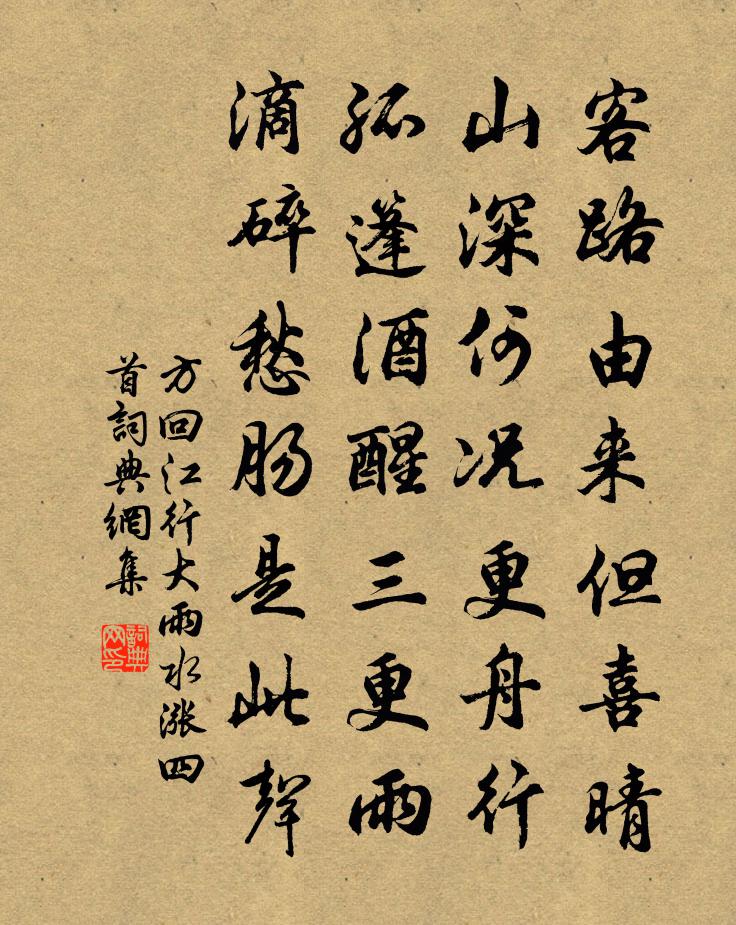 客路由来但喜晴
山深何况更舟行
孤篷酒醒三更雨
滴碎愁肠是此聲
方回江行大雨水漲四
首詞典網集
詞典网印